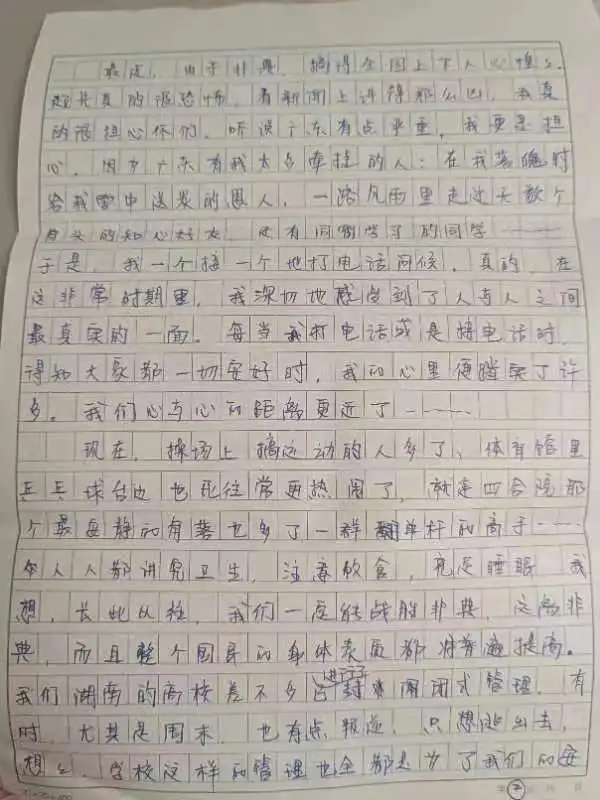 最近，由于非典，搞得全国上下人心惶惶。
起先真的很恐怖，看新闻上讲得那么凶，我真
的很担心你们，听说广东有点严重，我更是担
心，因为广东有我太多牵挂的人：在我落魄时
给我雪中送炭的恩人，一路风雨里走过无数个
年头的知心好友，还有同窗学子的同学……
于是，我一个接一个地打电话问候，真的，在
这非常时期里，我深切地感受到了人与人之间
最真实的一面。每当我打电话或是接电话时，
得知大家都一切安好时，我的心里便踏实了许
多。我们心与心的距离更近了……
现在，操场上搞运动的人多了，体育馆里
乒乓球台边也比往常更热闹了，就连四合院那
个最安静的角落也多了一群翻单杆的高手……
人人都讲究卫生，注意饮食，充足睡眠，我
想，长此以往，我们一定能战胜非典，远离非
典，而且整个国民的身体素质都将普遍提高。
我们湖南的高校差不多已进行了封闭式管理，有
时，尤其是周末，也有点报道，只想逃出去，
想想，学校这样的管理也全都是为了我们的安
第 2 页